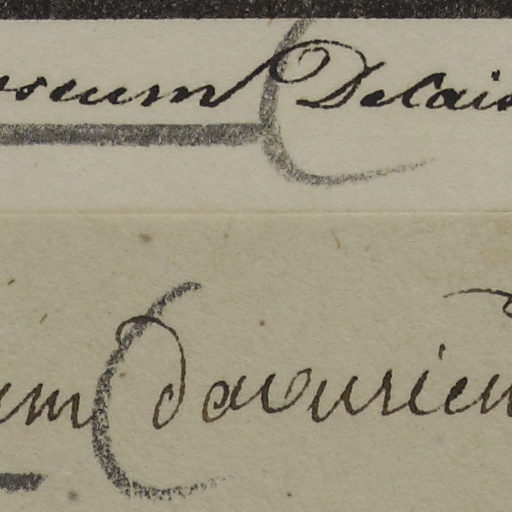 oseum Delais
um davurien